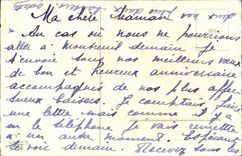 Ma chère Maman
Au cas où nous ne pourrions
aller à Montreuil demain je
t'envoie tous nos meilleurs vœux
de bon et heureux anniversaire
accompagnés de nos plus affec-
tueux baisers. Je comptais faire
une lettre mais comme il y a
le téléphone je vais remettre
à un autre moment. Espérant
te voir demain. Recevez tous les